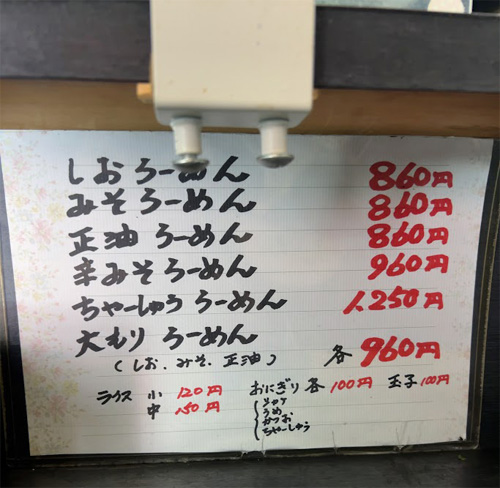 しおらーめん 860円
みそらーめん 860円
正油らーめん 860円
辛みそらーめん 960円
ちゃーしゅうらーめん 1.250円
大もりらーめん
(しお.みそ.正油) 各960円
ライス 小 120円 おにぎり 各100円 玉子100円
中 150円
シャケ
うめ
かつお
ちゃーしゅう